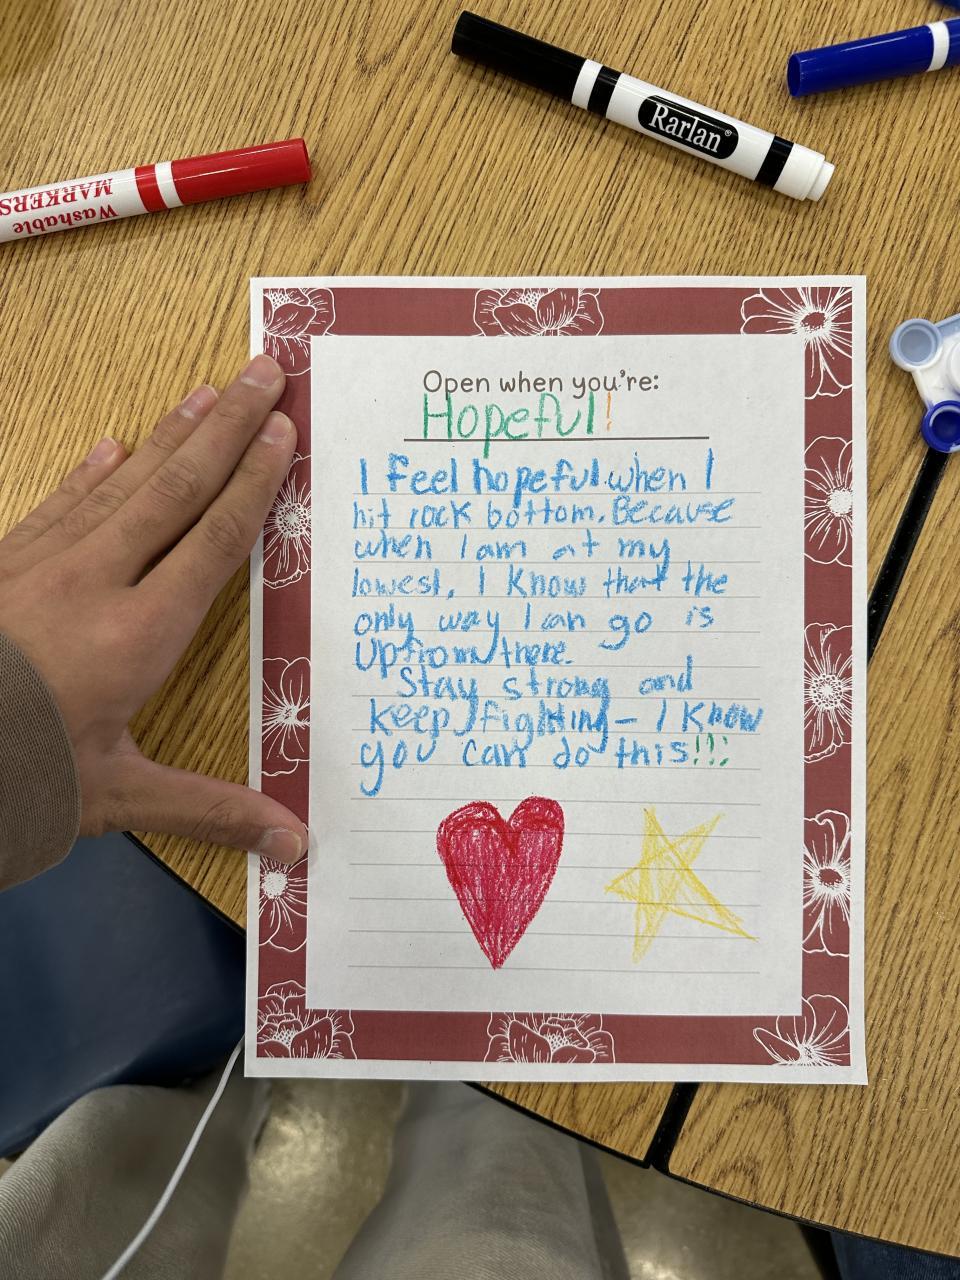 Rarlan®
Washable
MARKERS
Open when you're:
Hopeful!
I feel hopeful when I
hit rock bottom. Because
when I am at my
lowest, I know that the
only way I can go is
up from there.
Stay strong and
keep fighting – I know
you can do this!!!